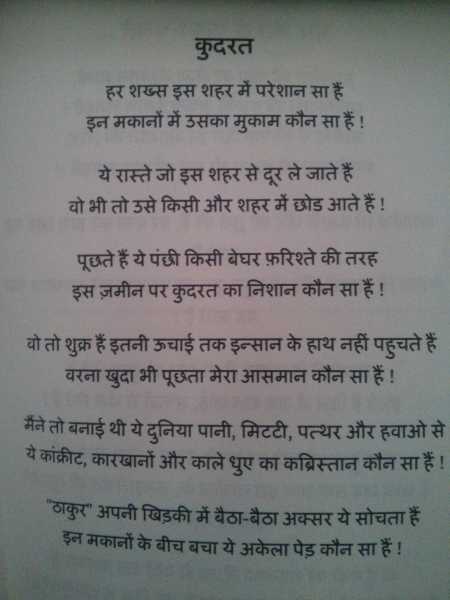 कुदरत
हर शख्स इस शहर में परेशान सा हैं
इन मकानों में उसका मुकाम कौन सा हैं !
ये रास्ते जो इस शहर से दूर ले जाते हैं
वो भी तो उसे किसी और शहर में छोड आते हैं !
पूछते हैं ये पंछी किसी बेघर फ़रिश्ते की तरह
इस ज़मीन पर कुदरत का निशान कौन सा हैं !
वो तो शुक्र हैं इतनी ऊचाई तक इन्सान के हाथ नहीं पहुचते हैं
वरना खुदा भी पूछता मेरा आसमान कौन सा हैं !
मैंने तो बनाई थी ये दुनिया पानी, मिटटी, पत्थर और हवाओ से
ये कांक्रीट, कारखानों और काले धुए का कब्रिस्तान कौन सा हैं !
"ठाकुर" अपनी खिडकी में बैठा-बैठा अक्सर ये सोचता हैं
इन मकानों के बीच बचा ये अकेला पेड़ कौन सा हैं !